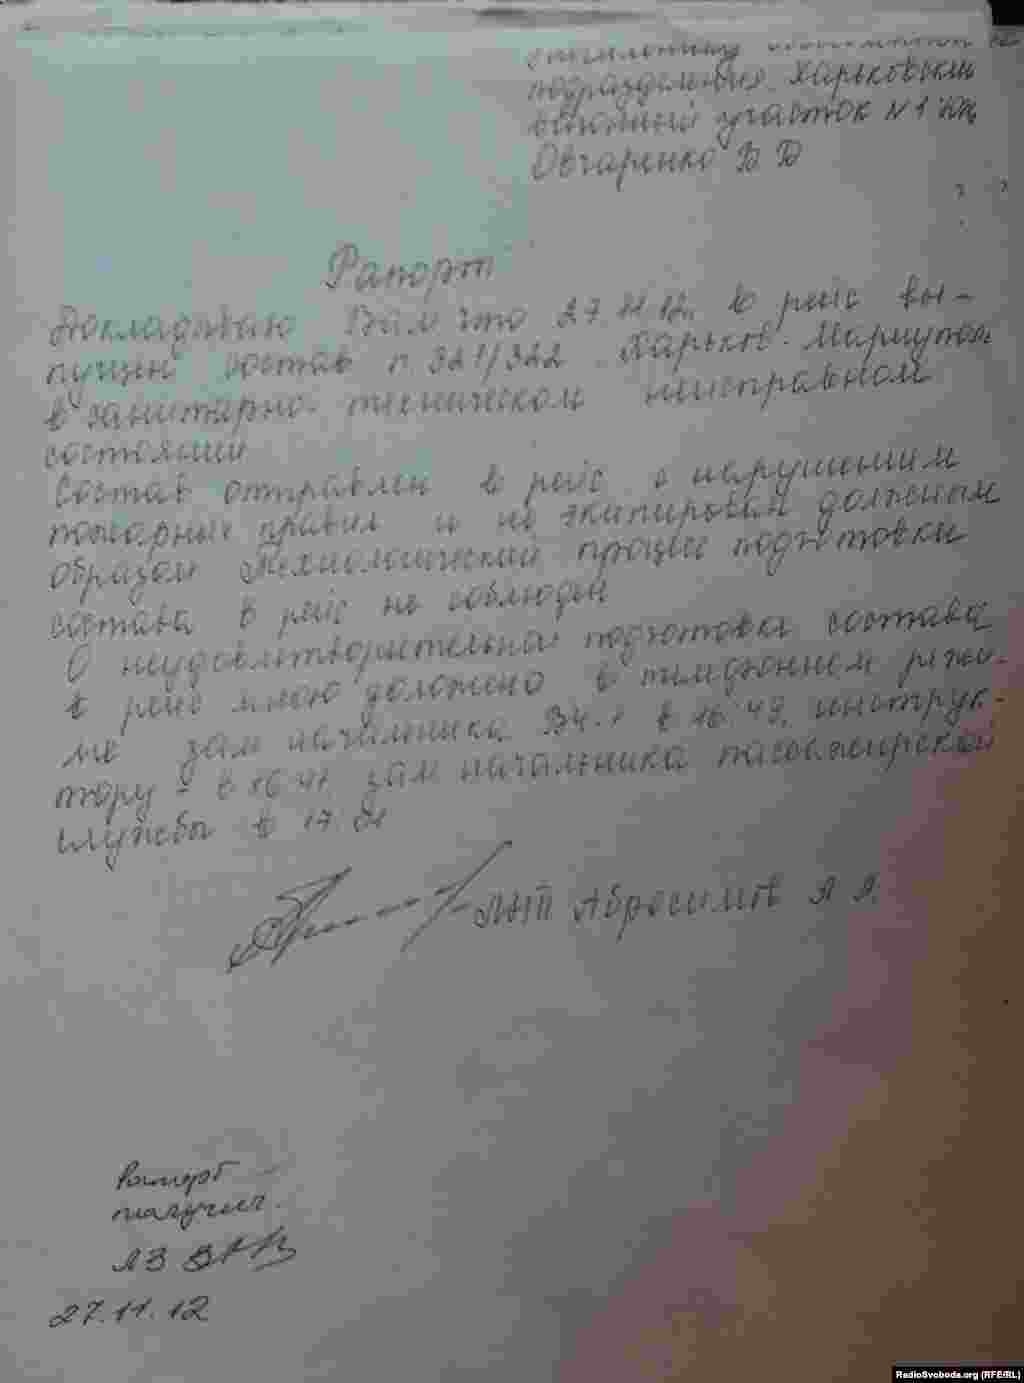 подразделения Харьковский
вагонный участок N 1 ЮЖ
Овчаренко В Д
Рапорт
Докладываю Вам что 27 11 12. в рейс вы-
пущен состав п. 321/322 Харьков - Мариуполь
в санитарно - техническом неисправном
состоянии
Состав отправлен в рейс с нарушением
пожарных правил и не экипирован должным
образом Технологический процес подготовки
состава в рейс не соблюден
О неудовлетворительной подготовки состава
в рейс мною доложено в телефонном режи-
ме зам начальника ВЧ-1 в 16 49, инструк-
тору - в 16 41 зам начальника пасажирской
службы в 17 01
ЛНП Абросимов А А.
Рапорт
получил.
27.11.12
RadioSvoboda.org (RFE/RL)